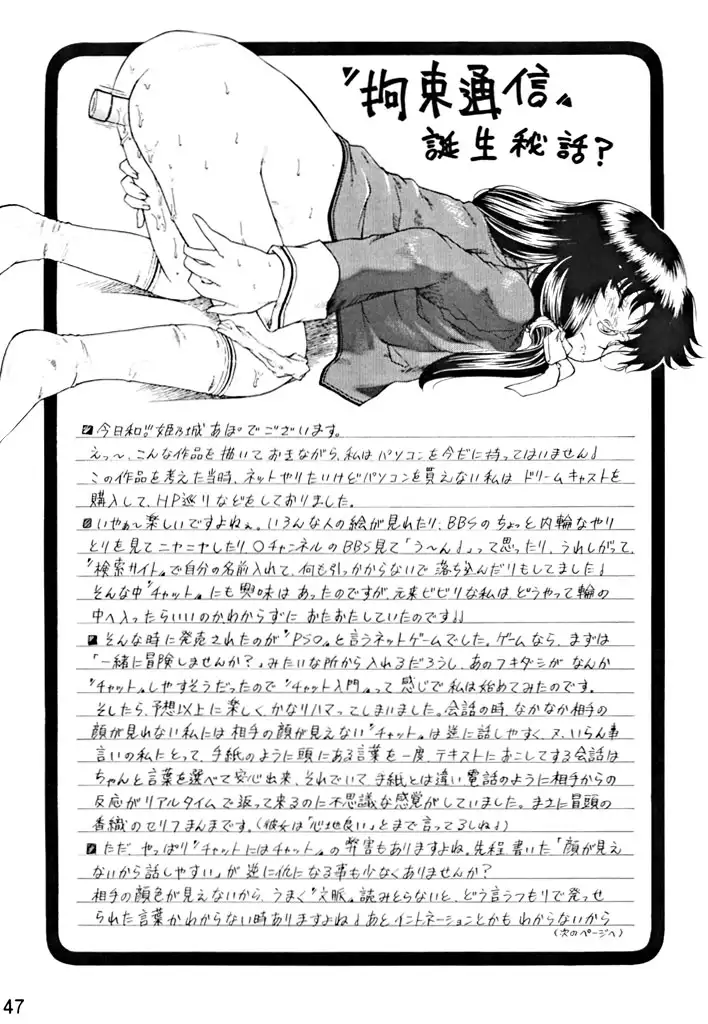 〝拘束通信〟
誕生秘話?
今日和!!姫乃城あぽでございます。
えっ〜、こんな作品を描いておきながら、私はパソコンを今だに持ってはいません♩
この作品を考えた当時、ネットやりたいけどパソコンを買えない私はドリームキャストを
購入して、HP巡りなどをしておりました。
いやぁ〜楽しいですよねぇ。いろんな人の絵が見れたり、BBSのちょっと内輪なやり
とりを見てニヤニヤしたり、〇チャンネルのBBS見て「う〜ん♩」って思ったり、うれしがって、
〝検索サイト〟で自分の名前入れて、何も引っかからないで落ち込んだりもしてました♩
そんな中〝チャット〟にも興味はあったのですが、元来ビビリな私は、どうやって輪の
中へ入ったらいいのかわからずにおたおたしていたのです♩♩
そんな時に発売されたのが〝PSO〟と言うネットゲームでした。ゲームなら、まずは
「一緒に冒険しませんか?」みたいな所から入れるだろうし、あのフキダシがなんか
〝チャット〟しやすそうだったので〝チャット入門〟って感じで私は始めてみたのです。
そしたら、予想以上に楽しく、かなりハマッてしまいました。会話の時、なかなか相手の
顔が見れない私には相手の顔が見えない〝チャット〟は逆に話しやすく、又、いらん事
言いの私にとって、手紙のように頭にある言葉を一度、テキストにおこしてする会話は
ちゃんと言葉を選べて安心出来、それでいて、手紙とは違い電話のように相手からの
反応がリアルタイムで返って来るのに不思議な感覚がしていました。まさに冒頭の
香織のセリフまんまです。(彼女は「心地良い」とまで言ってるしね♩)
ただ、やっぱり〝チャットにはチャット〟の弊害もありますよね。先程書いた「顔が見え
ないから話しやすい」が逆に仇になる事も少なくありませんか?
相手の顔色が見えないから、うまく〝文脈〟読みとらないと、どう言うつもりで発っせ
られた言葉かわからない時ありますよね♩あとイントネーションとかもわからないから
(次のページへ)
47